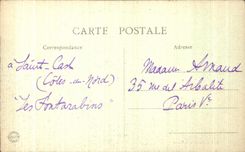 CARTE POSTALE
Correspondance
Adresse
à Saint-Cast
(Côtes-du-Nord)
"Les Fontarabins"
Madame Armand
35 rue de l'Arbalète
Paris Ve